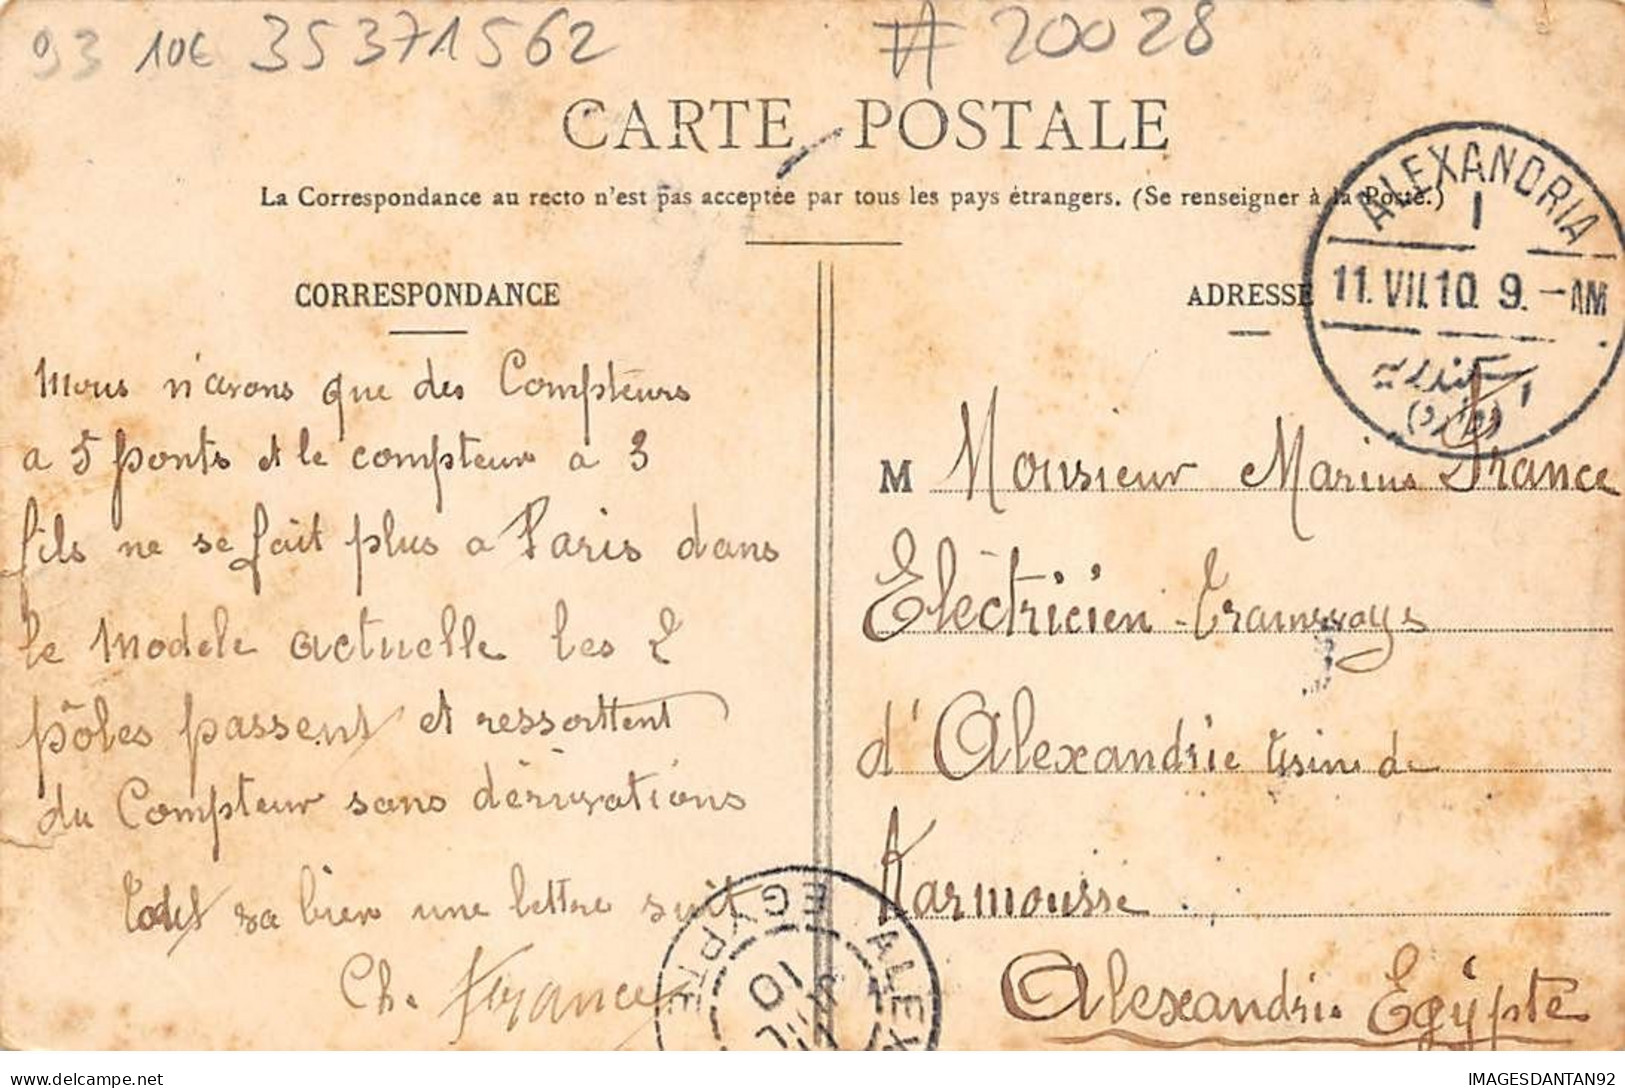 93 10€ 35371562 # 20028
CARTE POSTALE
La Correspondance au recto n'est pas acceptée par tous les pays étrangers. (Se renseigner à la Poste.)
ALEXANDRIA
I
11.VII.10. 9.-AM
اسكندرية
CORRESPONDANCE
Nous n'avons que des Compteurs
a 5 ponts et le compteur a 3
fils ne se fait plus a Paris dans
le modele actuelle les 2
pôles passent et ressortent
du Compteur sans dérivations
Tout va bien une lettre suit
Ch. France
ADRESSE
M Monsieur Marius France
Elèctricien-Tramways
d'Alexandrie Usine de
Karmousse
Alexandrie Egÿpte
ALEX
EGYPTE
10
IMAGESDANTAN92
delcampe.net